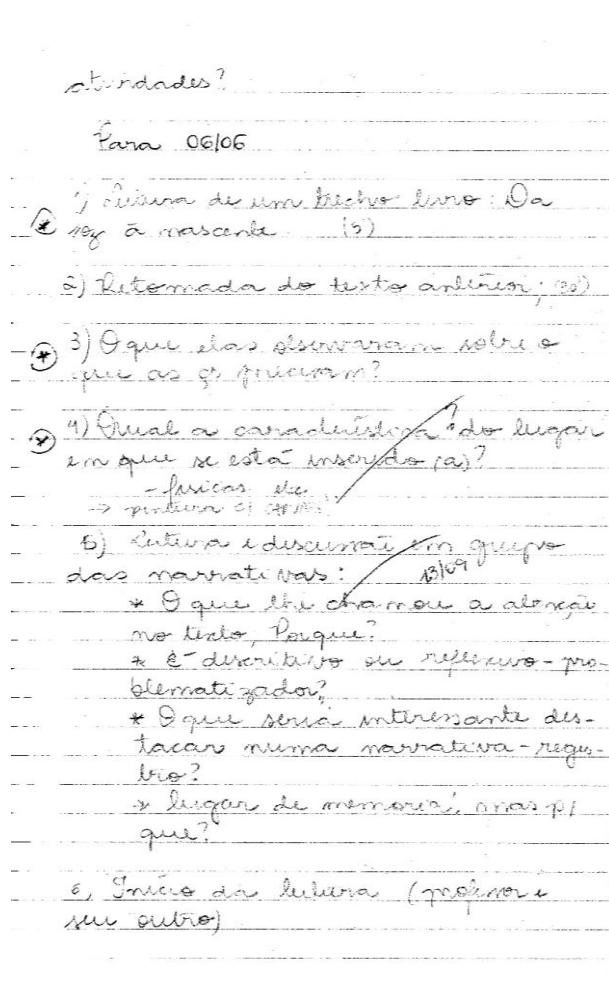 atividades?
Para 06/06
1) Leitura de um trecho livro: Da
voz à nascente (5)
2) Retomada do texto anterior;
3) O que elas observaram sobre o
que as çs fizeram?
4) Qual a característica do lugar
em que se está inserido (a)?
- físicas etc
→ pintura c/
5) Leitura e discussão em grupo
das narrativas: 13/09
* O que lhe chamou a atenção
no texto, Porque?
* É descritivo ou reflexivo-pro-
blematizador?
* O que seria interessante des-
tacar numa narrativa-regis-
tro?
* lugar de memória, mas p/
que?
6) Início da leitura (professor e
seu outro)